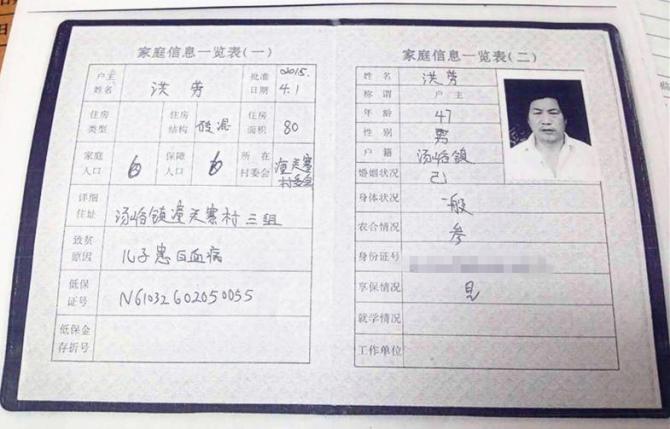 家庭信息一览表(一)
户主姓名 洪芳 批准日期 2015.4.1
住房类型 住房结构 砖混 住房面积 80
家庭人口 6 保障人口 6 所在村委会 潼天寨村委会
详细住址 汤峪镇潼天寨村三组
致贫原因 儿子患白血病
低保证号 N61032602050055
低保金存折号
家庭信息一览表(二)
姓名 洪芳
称谓 户主
年龄 47
性别 男
户籍 汤峪镇
婚姻状况 已
身体状况 一般
农合情况 参
身份证号
享保情况 见
就学情况
工作单位